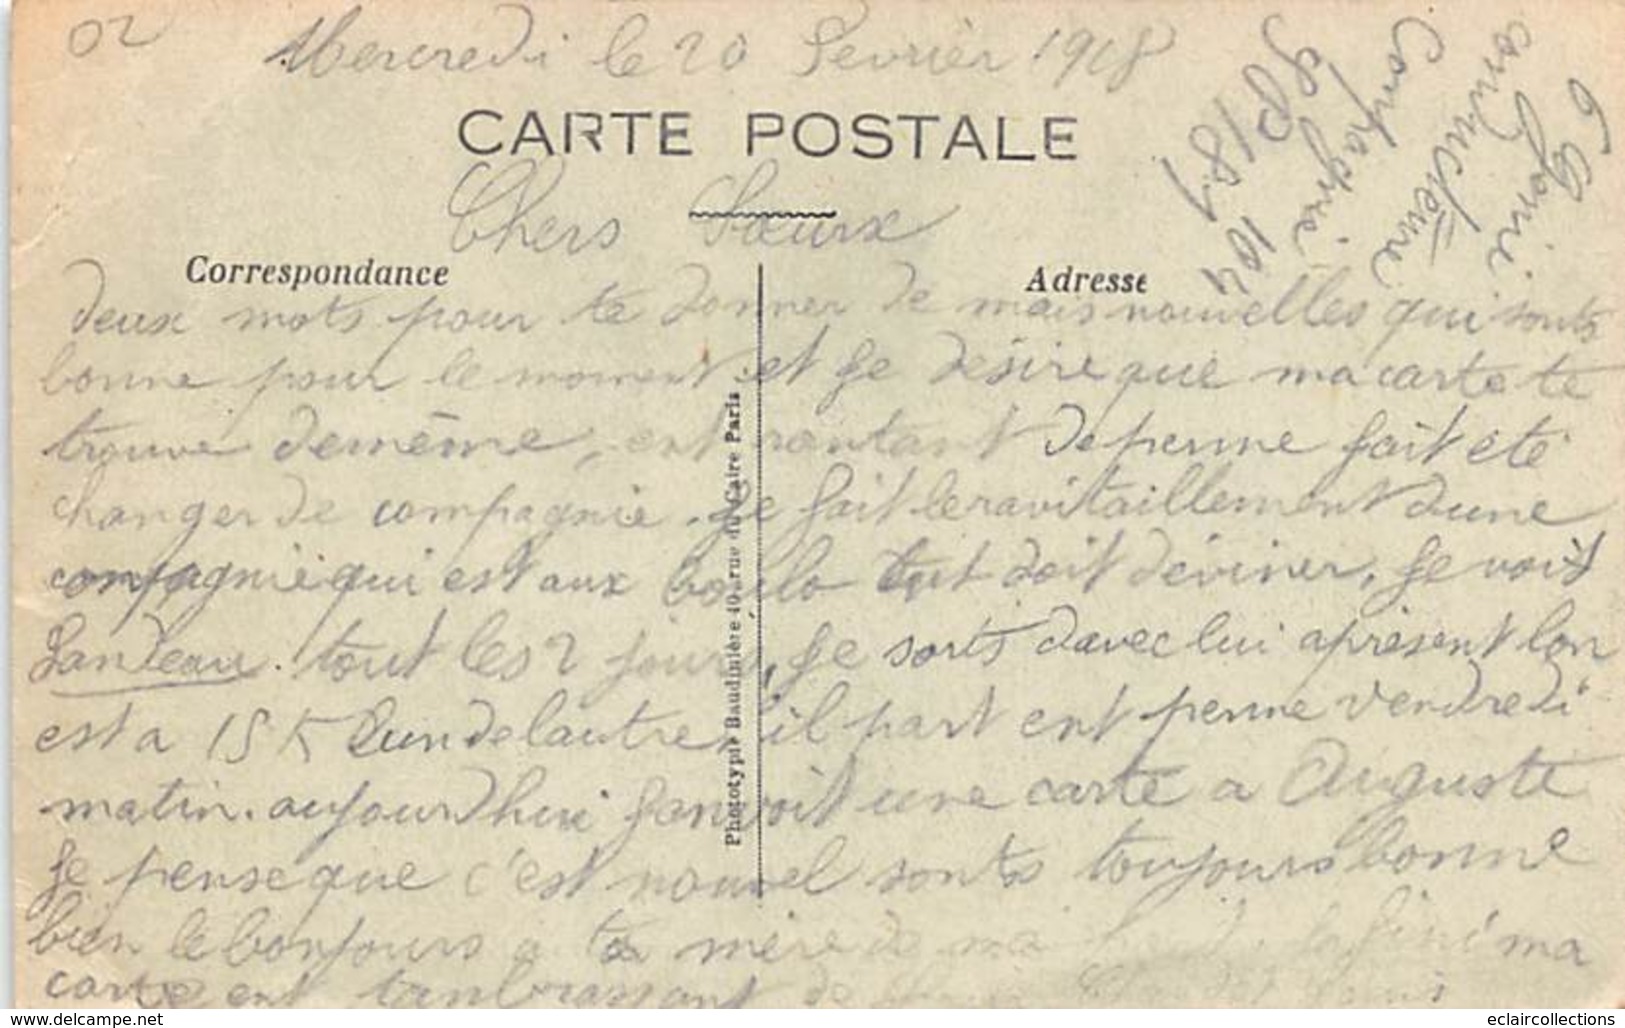 02
Mercredi le 20 Fevrièr 1918
CARTE POSTALE
6 e Genie
conducteure
Compagnie
SP 181
104
Chers Sœurx
Correspondance
Adresse
deux mots pour te donner de mais nouvelles qui sonts
bonne pour le moment et je désire que ma carte te
trouve de même, ent rentant de perme jait été
changer de compagnie. je fait le ravitaillement dune
compagnie qui est aux boulo tut doit déviner, je voit
Landeau. tout les 2 jours, je sorts davec lui apresent lon
est a 15 K lun de lautre, il part ent perme vendredi
matin. aujourdhui janvoit une carte a Auguste
je pense que c'est nouvel sonts toujours bonne
bien le bonjours a ta mère de ma ma
carte ent tanbrassant de
Phototypie Baudinière 40, rue du Caire Paris
www.delcampe.net
eclaircollections